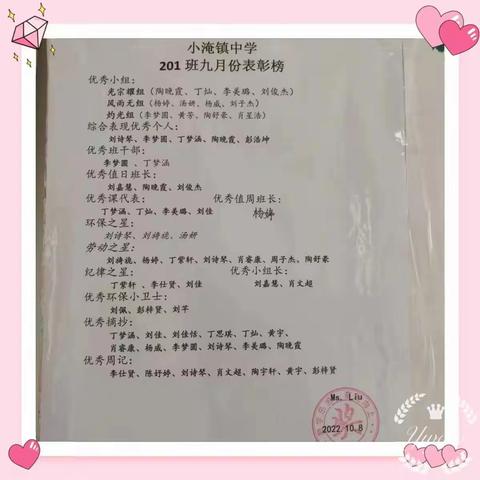 小淹镇中学
201 班九月份表彰榜
优秀小组:
光宗耀组(陶晚霞、丁灿、李美璐、刘俊杰)
风雨无组(杨婷、汤妍、杨威、刘子杰)
灼光组(李梦圆、黄芳、陶舒豪、肖星浩)
综合表现优秀个人:
刘诗琴、李梦圆、丁梦涵、陶晚霞、彭浩坤
优秀班干部:
李梦圆 、丁梦涵
优秀值日班长:
刘嘉慧、陶晚霞、刘俊杰
优秀课代表: 优秀值周班长:
丁梦涵、丁灿、李美璐、刘佳
环保之星:
刘诗琴、刘漪旎、汤妍
劳动之星:
刘漪旎、杨婷、丁紫轩、刘诗琴、肖睿康、周子杰、陶舒豪
纪律之星: 优秀小组长:
丁紫轩 、李仕贤、刘佳 刘嘉慧、肖文超
优秀环保小卫士:
刘佩、彭梓贤、刘芊
优秀摘抄:
丁梦涵、刘佳、刘佳恬、丁思琪、丁灿、黄宇、
肖睿康、杨威、李梦圆、刘诗琴、李美璐、陶晚霞
优秀周记:
李仕贤、陈妤婷、刘诗琴、肖文超、陶宇轩、黄宇、彭梓贤
Ms. Liu
奖
2022.10.8